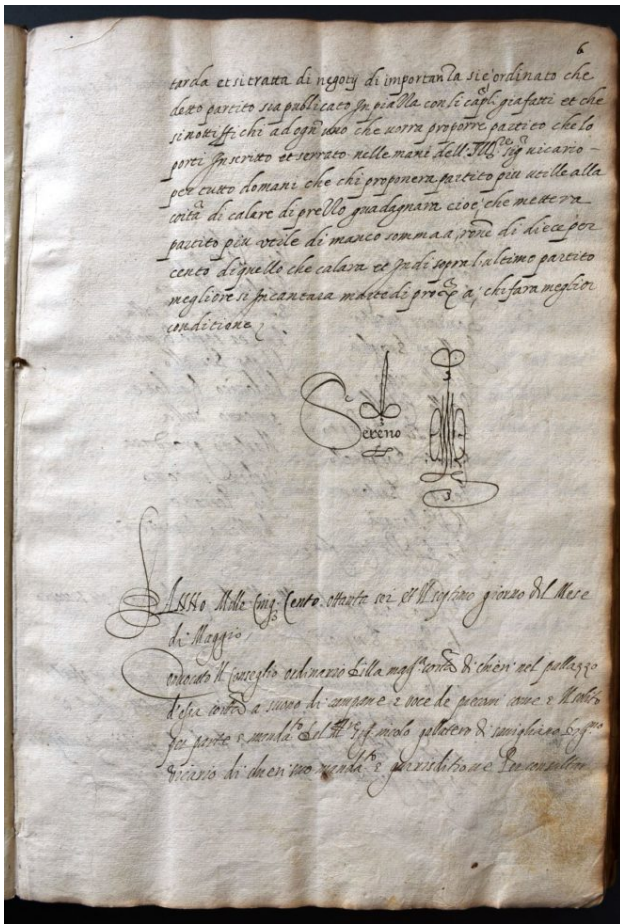 6
tarda et si tratta di negoty di importanza si e ordinato che
detto partito sia publicato In piazza con li capli gia fatti et che
si nottiffichi ad ogn uno che vorra proporre partito che lo
porti Inscritto et serrato nelle mani dell Illre sigr vicario -
per tutto domani che chi proponera partito piu utille alla
coita di calare di prezzo guadagnara cioe che mettera
partito piu utile di manco somma a rone di diece per
cento di quello che calara et Indi sopra l'ultimo partito
megliore si Incantara martedi a chi fara meglior
conditione
Sereno
Anno Mille Cinq Cento ottanta sei et Il giorno del Mese
di Maggio
Il Conseglio ordinario della magca coita di cheri nel pallazzo
d'essa coita a suono di campane e voce de come e Il solito
per parte e mandato del
vicario di cheri suo mandato e giurisditione